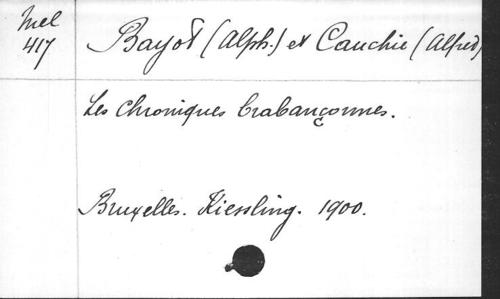 Mel
417
Bayot (Alph.) et Cauchie (Alfred)
Les chroniques brabançonnes.
Bruxelles. Kiessling. 1900.